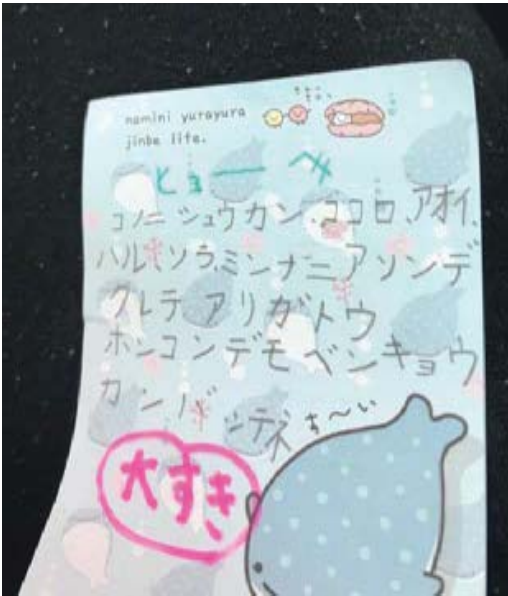 namini yurayura
jinbe life.
ヒョーヘ
コノニシュウカン、ココロ、アオイ、
ハル、ソラ、ミンナニアソンデ
クレテアリガトウ
ホンコンデモベンキョウ
カンバシテネ
す〜い
大すき